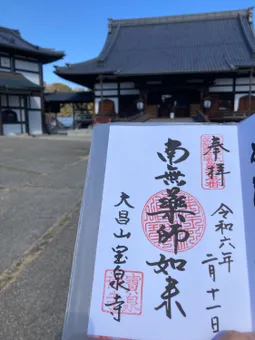 奉拝
令和六年二月十一日
南無薬師如来
大昌山宝泉寺